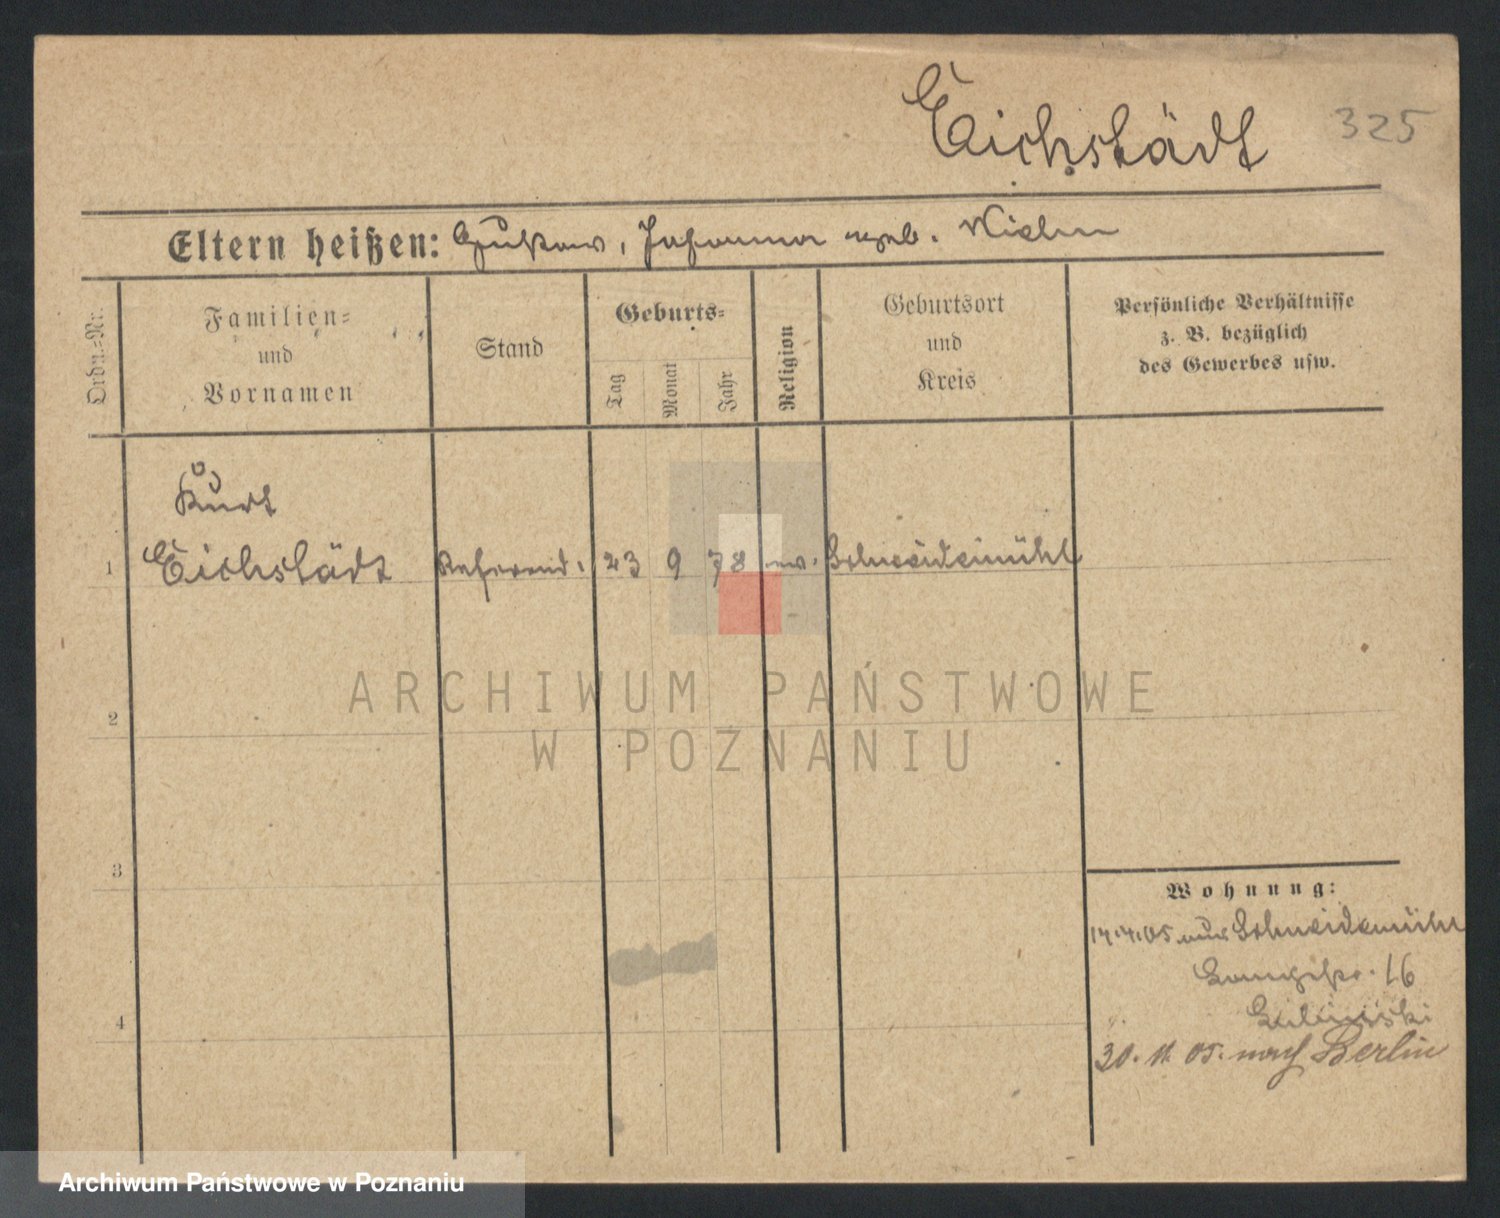 Eichstädt 325
Eltern heißen: Gustav, Johanna geb.
Ordn.-Nr.
Familien-
und
Vornamen
Stand
Geburts-
Tag
Monat
Jahr
Religion
Geburtsort
und
Kreis
Persönliche Verhältnisse
z. B. bezüglich
des Gewerbes usw.
Kurt
1 Eichstädt Referend. 23 9 78 ev. Schneidemühl
ARCHIWUM PAŃSTWOWE
2
W POZNANIU
3
Wohnung:
05 aus Schneidemühl
16
4
30. 11. 05. nach Berlin
Archiwum Państwowe w Poznaniu